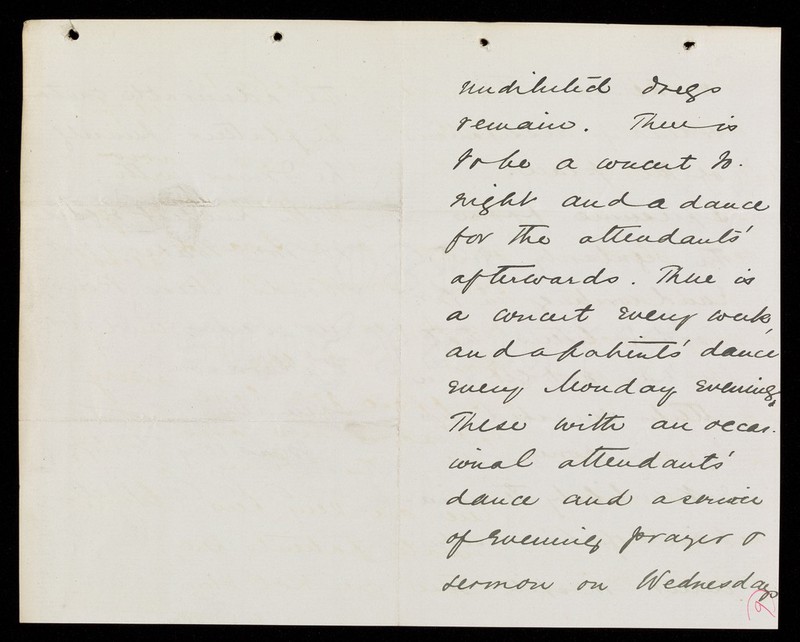 undiluted dregs
remain. There is
to be a concert to-
night and a dance
for the attendants'
afterwards. There is
a concert every week,
and a patients' dance
every Monday evening.
These with an occas-
ional attendants'
dance and a service
of evening prayer &
sermon on Wednesdays
9